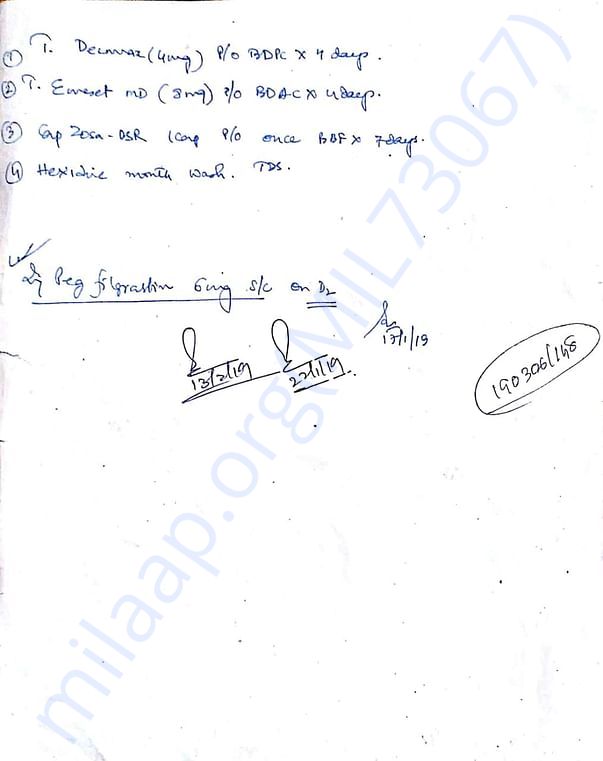 ① T. Decmax (4mg) P/O BDPC x 4 days.
② T. Emeset MD (8mg) P/O BDAC x 4 days.
③ Cap Zosa-DSR 1 cap P/O once BBF x 7 days.
④ Hexidine month wash. TDS.
Inj Peg filgrastim 6mg S/C on D2
17/1/19
13/2/19 22/1/19
milaap.org(MIL73067)